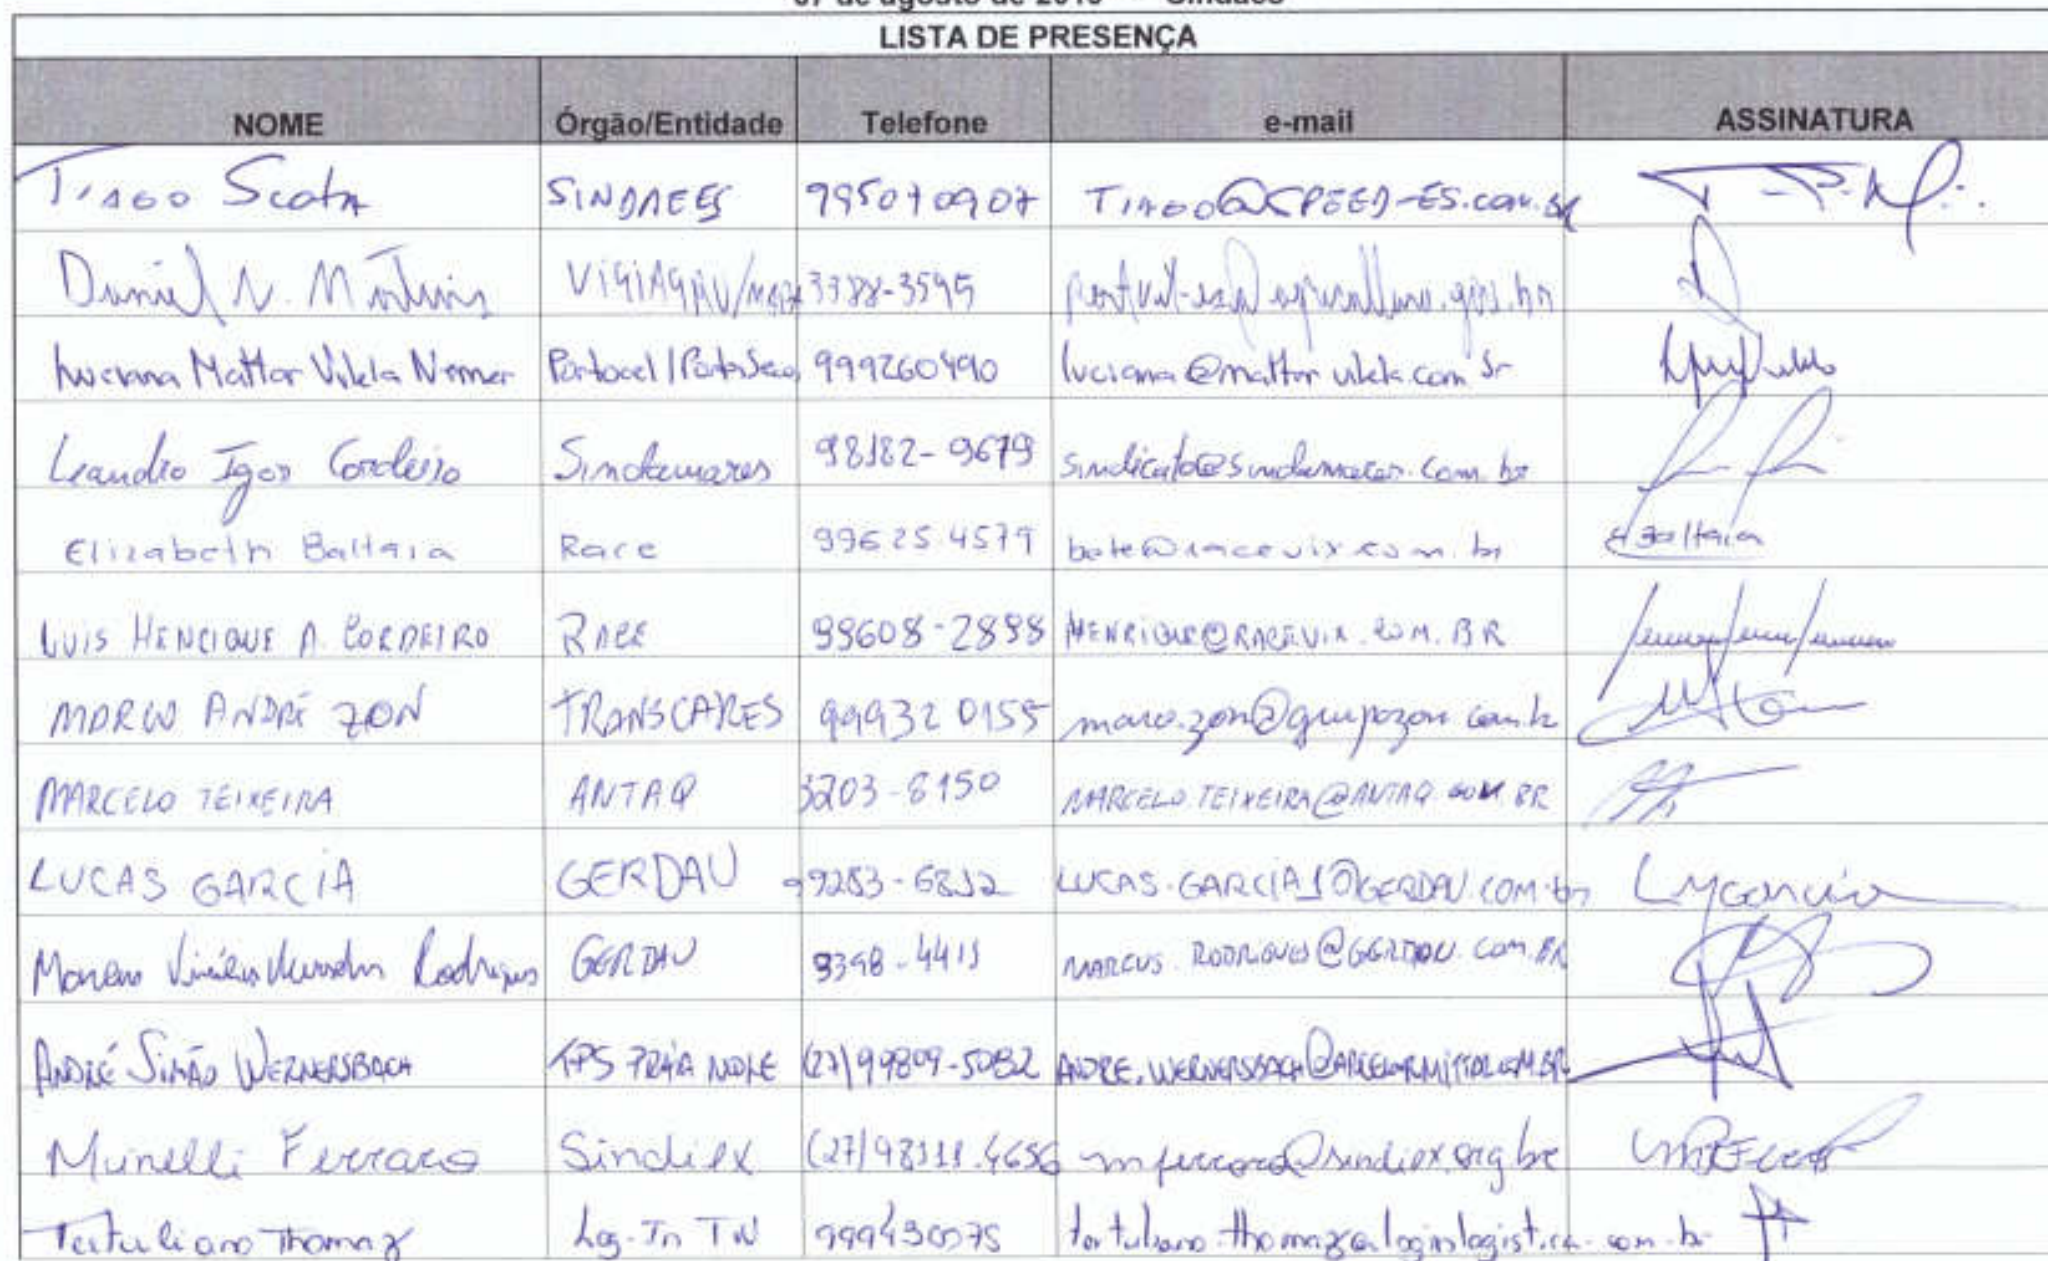 07 de agosto de 2015 - Sindaes
LISTA DE PRESENÇA
NOME Órgão/Entidade Telefone e-mail ASSINATURA
TIAGO Scota SINDAEES 995070907 TIAGO@SPEED-ES.COM.BR
Daniel N. Martins VIGIAGRO/MAPA 3388-3595
Luciana Mattar Vilela Nemer Portocel/ 999260490 luciana@mattarvilela.com.br
Leandro Igor Cordeiro Sindamares 98182-9679 sindicato@sindamares.com.br
Elizabeth Baltaia Race 99625 4579 bete@racevix.com.br EBaltaia
LUIS HENRIQUE A. CORDEIRO RACE 99608-2898 HENRIQUE@RACEVIX.COM.BR
MARCO ANDRÉ ZON TRANSCARES 999320155 marco.zon@grupozon.com.br
MARCELO TEIXEIRA ANTAQ 3203-8150 MARCELO.TEIXEIRA@ANTAQ.GOV.BR
LUCAS GARCIA GERDAU 99283-6812 LUCAS.GARCIA1@GERDAU.COM.br Lucgarcia
Rodrigues GERDAU 3398-4411 MARCUS.RODRIGUES@GERDAU.COM.BR
ANDRÉ SIMÃO WERNERSBACH TPS PRAIA MOLE (27)99809-5082 ANDRE.WERNERSBACH@ARCELORMITTAL.COM.BR
Munelli Ferraro Sindiex (27)98111.4656 mferraro@sindiex.org.br
Tertuliano Thomaz Log-In TVV 999430075 tertuliano.thomaz@loginlogistica.com.br